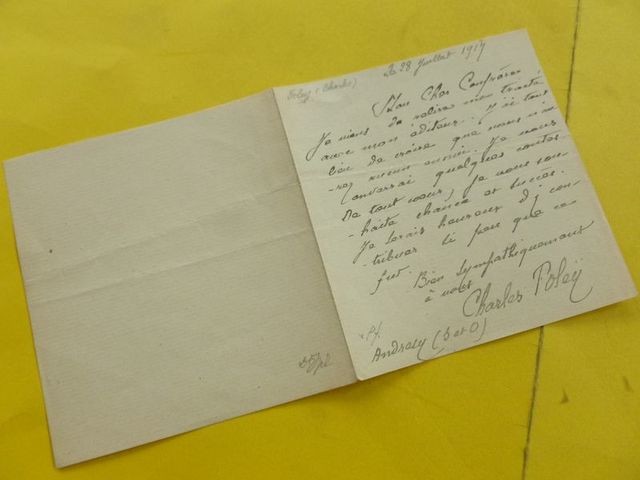 Foleÿ (Charles)
Le 28 juillet 1917
Mon Cher Confrère
Je viens de relire mon traité
avec mon éditeur. J'ai tout
lieu de croire que vous n'au-
rez aucun ennui. Je vous
enverrai quelques contes.
De tout cœur, je vous sou-
-haite chance et succès.
Je serais heureux d'y con-
tribuer si peu que ce
fut.
Bien sympathiquement
à vous
Charles Foleÿ
Andrésy (S et O)